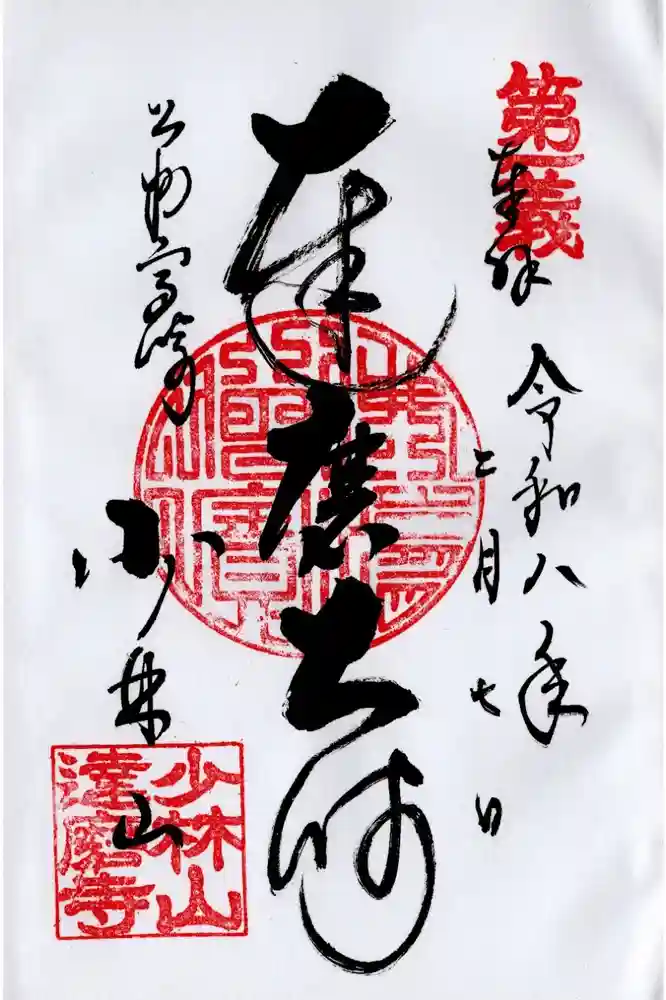 第一義
奉拝
令和八年
二月七日
達磨大師
上州高崎
少林山
少林山
達磨寺